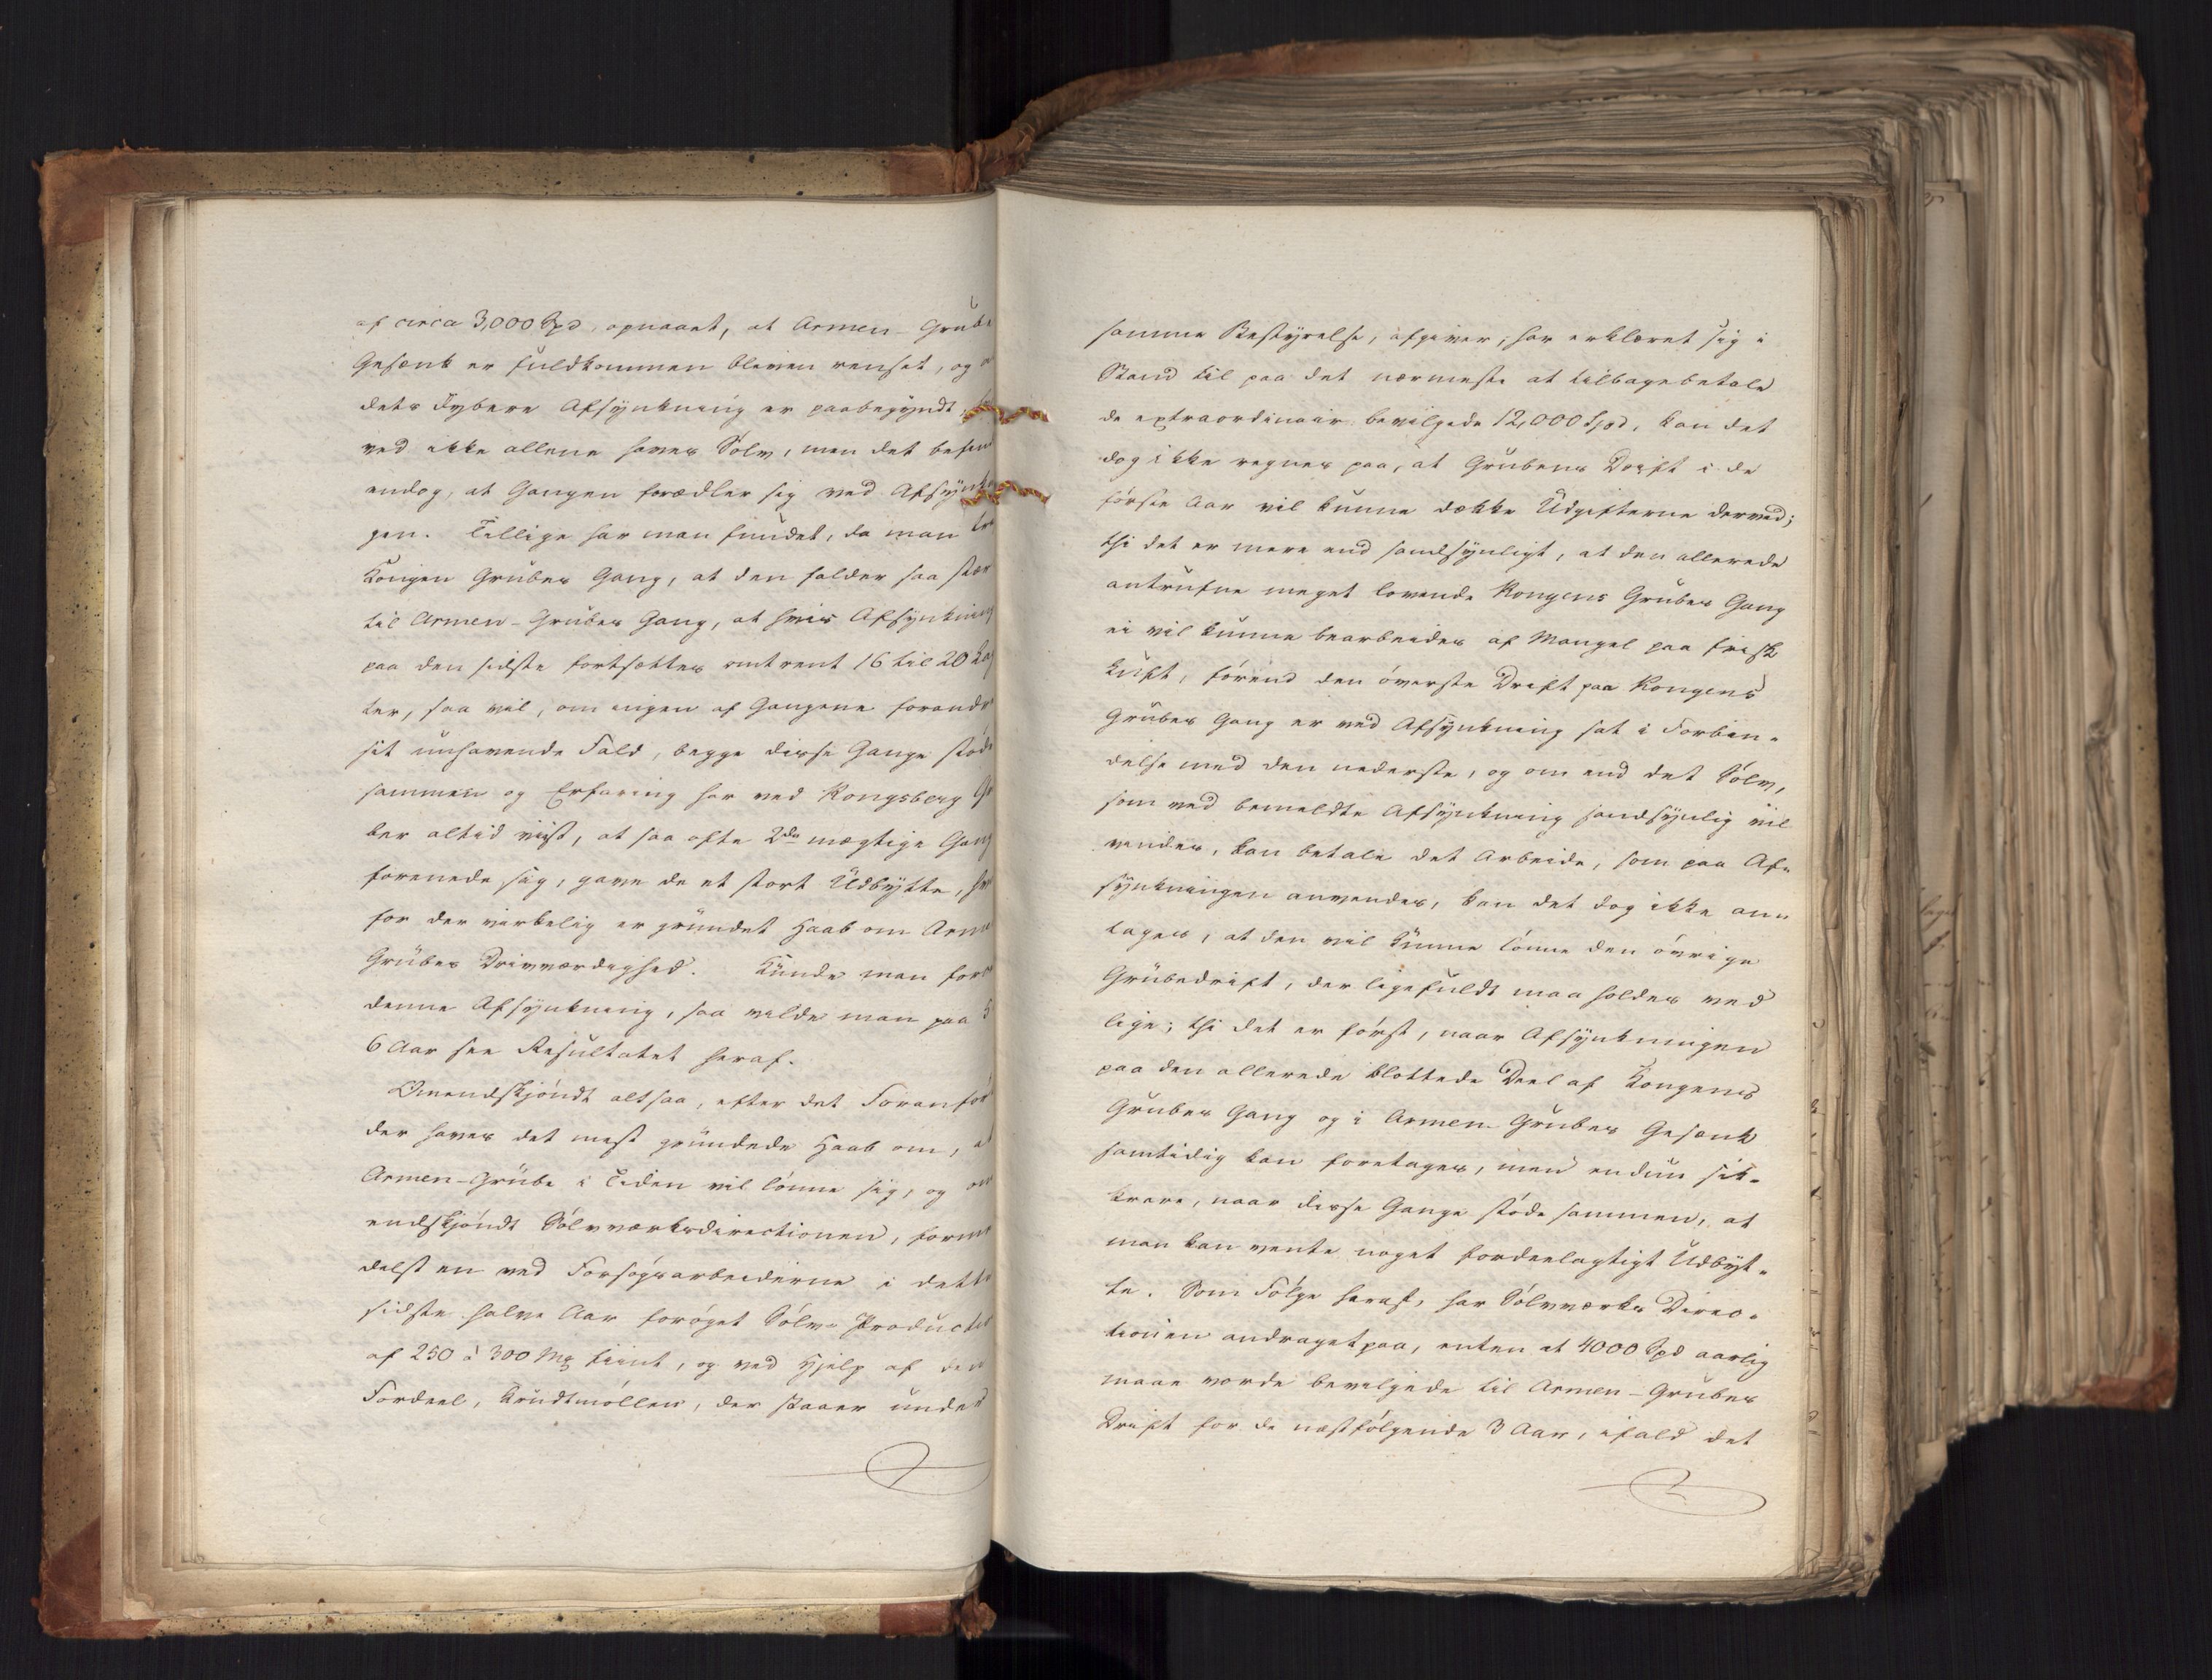 af circa 3,000 Spd, opnaaet, at Armen-Grube
Gesænk er fuldkommen bleven renset, og
dets dybere Afsynkning er paabegyndt,
ved ikke allene haves Sølv, men det befin
endog, at Gangen forædler sig ved Afsynk
gen. Tillige har man fundet, da man
Kongen Grubes Gang, at den falder saa stær
til Armen-Grubes Gang, at hvis Afsynkning
paa den sidste fortsættes omtrent 16 til 20
ter, saa vil, om ingen af Gangene forandr
sit unhavende Fald, begge disse Gange støde
sammen og Erfaring har ved Kongsberg Gr
ber altid viist, at saa ofte 2de mægtige Gang
forenede sig, gave de et stort Udbytte, hvor
for der virkelig er grundet Haab om Arme
Grubes Drivværdighed. Kunde man fors
denne Afsynkning, saa vilde man paa 5
6 Aar see Resultatet heraf.
Omendskjøndt altsaa, efter det Foranfør
der haves det mest grundede Haab om, at
Armen-Grube i Tiden vil lønne sig, og om
endskjøndt Sølvværksdirectionen, forme
delst en ved Forsøgsarbeiderne i dette
sidste halve Aar forøget Sølv-Production
af 250 à 300 Mk fiint, og ved Hjelp af den
Fordeel, Krudtmøllen, der staaer under
samme Bestyrelse, afgiver, har erklæret sig i
Stand til paa det nærmeste at tilbagebetale
de extraordinair bevilgede 12,000 Spd, kan det
dog ikke regnes paa, at Grubens Drift i de
første Aar vil kunne dække Udgifterne derved;
thi det er mere end sandsynligt, at den allerede
antrufne meget lovende Kongens Grubes Gang
ei vil kunne bearbeides af Mangel paa frisk
Luft, førend den øverste Drift paa Kongens
Grubes Gang er ved Afsynkning sat i Forbin-
delse med den nederste, og om end det Sølv,
som ved bemeldte Afsynkning sandsynlig vil
vindes, kan betale det Arbeide, som paa Af-
synkningen anvendes, kan det dog ikke an-
tages, at den vil kunne lønne den øvrige
Grubedrift, der ligefuldt maa holdes ved
lige; thi det er først, naar Afsynkningen
paa den allerede blottede Deel af Kongens
Grubes Gang og i Armen Grubes Gesænk
samtidig kan foretages, men endnu sik-
krere, naar disse Gange støde sammen, at
man kan vente noget fordeelagtigt Udbyt-
te. Som Følge heraf, har Sølvværks Direc-
tionen andraget paa, enten at 4000 Spd aarlig
maae vorde bevilgede til Armen-Grubes
Drift for de næstfølgende 3 Aar, ifald det